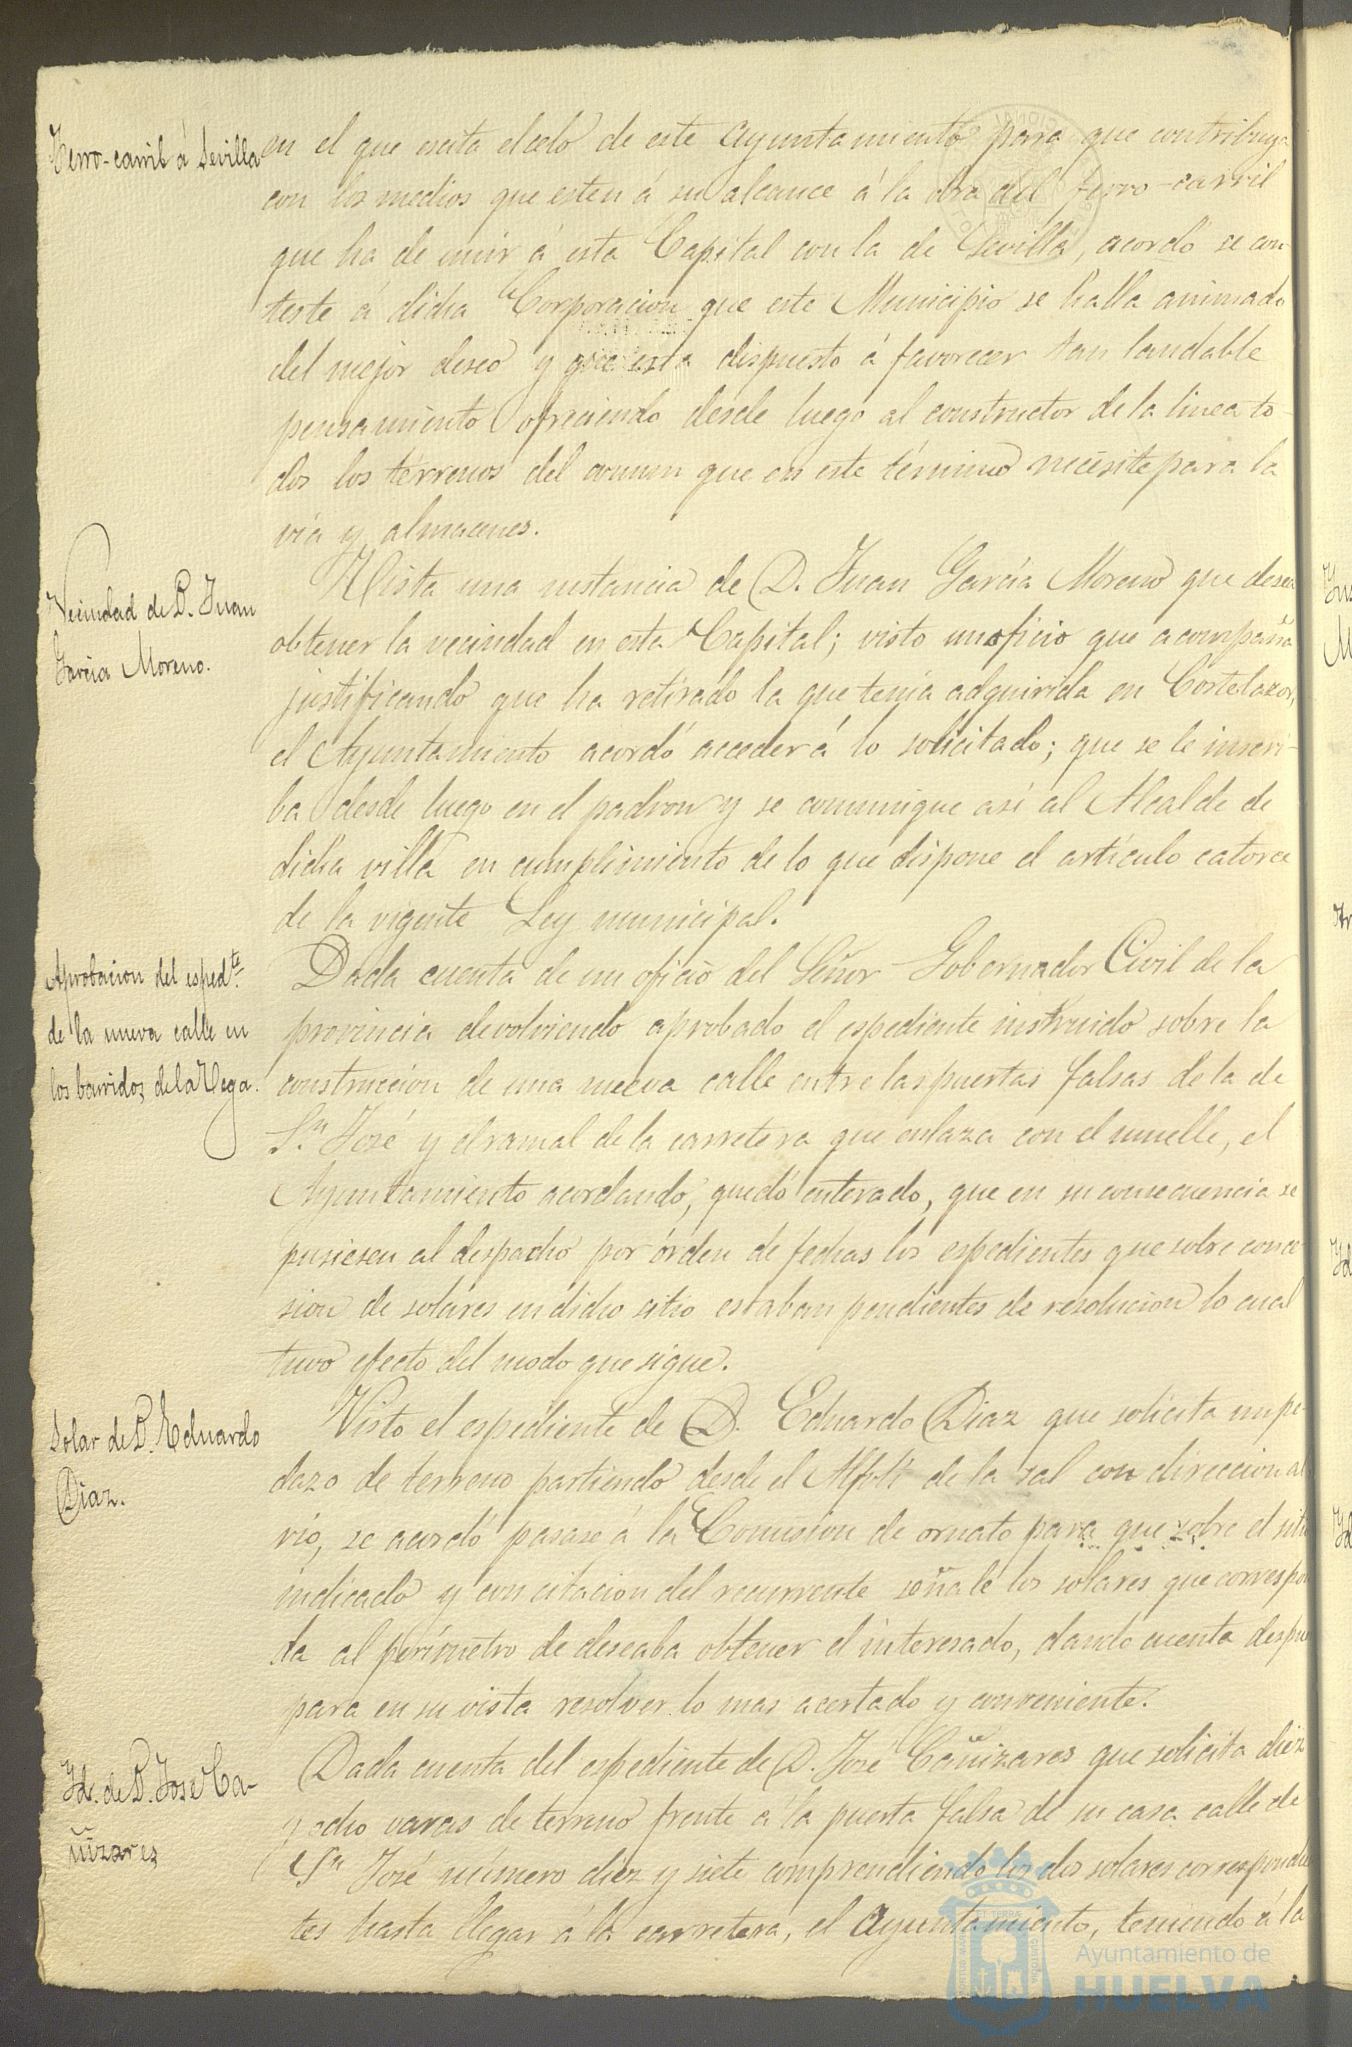 Ferro-carril á Sevilla
en el que escita el celo de este Ayuntamiento para que contribuya
con los medios que esten á su alcance á la obra del ferro-carril
que ha de unir á esta Capital con la de Sevilla, acordó se con-
teste á dicha Corporacion que este Municipio se halla animado
del mejor deseo y que esta dispuesto á favorecer tan laudable
pensamiento ofreciendo desde luego al constructor de la linea to-
dos los terrenos del comun que en este término necesite para la
via y almacenes.
Vecindad de D. Juan
Garcia Moreno.
Vista una instancia de D. Juan Garcia Moreno que desea
obtener la vecindad en esta Capital; visto un oficio que acompaña
justificando que ha retirado la que tenia adquirida en Cortelazor,
el Ayuntamiento acordó acceder á lo solicitado; que se le inscri-
ba desde luego en el padron y se comunique asi al Alcalde de
dicha villa en cumplimiento de lo que dispone el artículo catorce
de la vigente Ley municipal.
Aprobacion del espedte.
de la nueva calle en
los barridos de la Vega.
Dada cuenta de un oficio del Señor Gobernador Civil de la
provincia devolviendo aprobado el espediente instruido sobre la
construccion de una nueva calle entre las puertas falsas de la de
Sn. José y el ramal de la carretera que enlaza con el muelle, el
Ayuntamiento acordando, quedó enterado, que en su consecuencia se
pusiesen al despacho por órden de fechas los espedientes que sobre conce-
sion de solares en dicho sitio estaban pendientes de resolucion lo cual
tuvo efecto del modo que sigue.
Solar de D. Eduardo
Diaz.
Visto el espediente de D. Eduardo Diaz que solicita un pe-
dazo de terreno partiendo desde el Alfolí de la sal con direccion al
rio, se acordó pasase á la Comision de ornato para que sobre el sitio
indicado y con citacion del recurrente señale los solares que correspon
da al perímetro de deseaba obtener el interesado, dando cuenta despues
para en su vista resolver lo mas acertado y conveniente.
Id. de D. José Ca-
ñizares
Dada cuenta del espediente de D. José Cañizares que solicita diez
y ocho varas de terreno frente a la puerta falsa de su casa calle de
Sn José número diez y siete comprendiendo los dos solares correspondien
tes hasta llegar á la carretera, el Ayuntamiento, teniendo á la
Ayuntamiento de
HUELVA